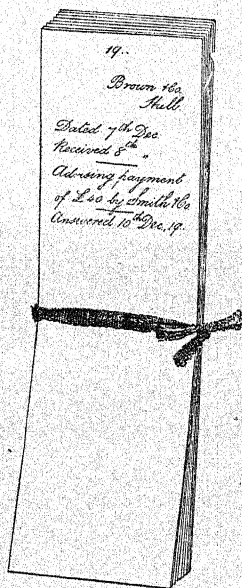 19..
Brown & Co.
Hull
Dated 7th Dec
Received 8th "
Advising payment
of £40 by Smith & Co
Answered 10th Dec, 19.